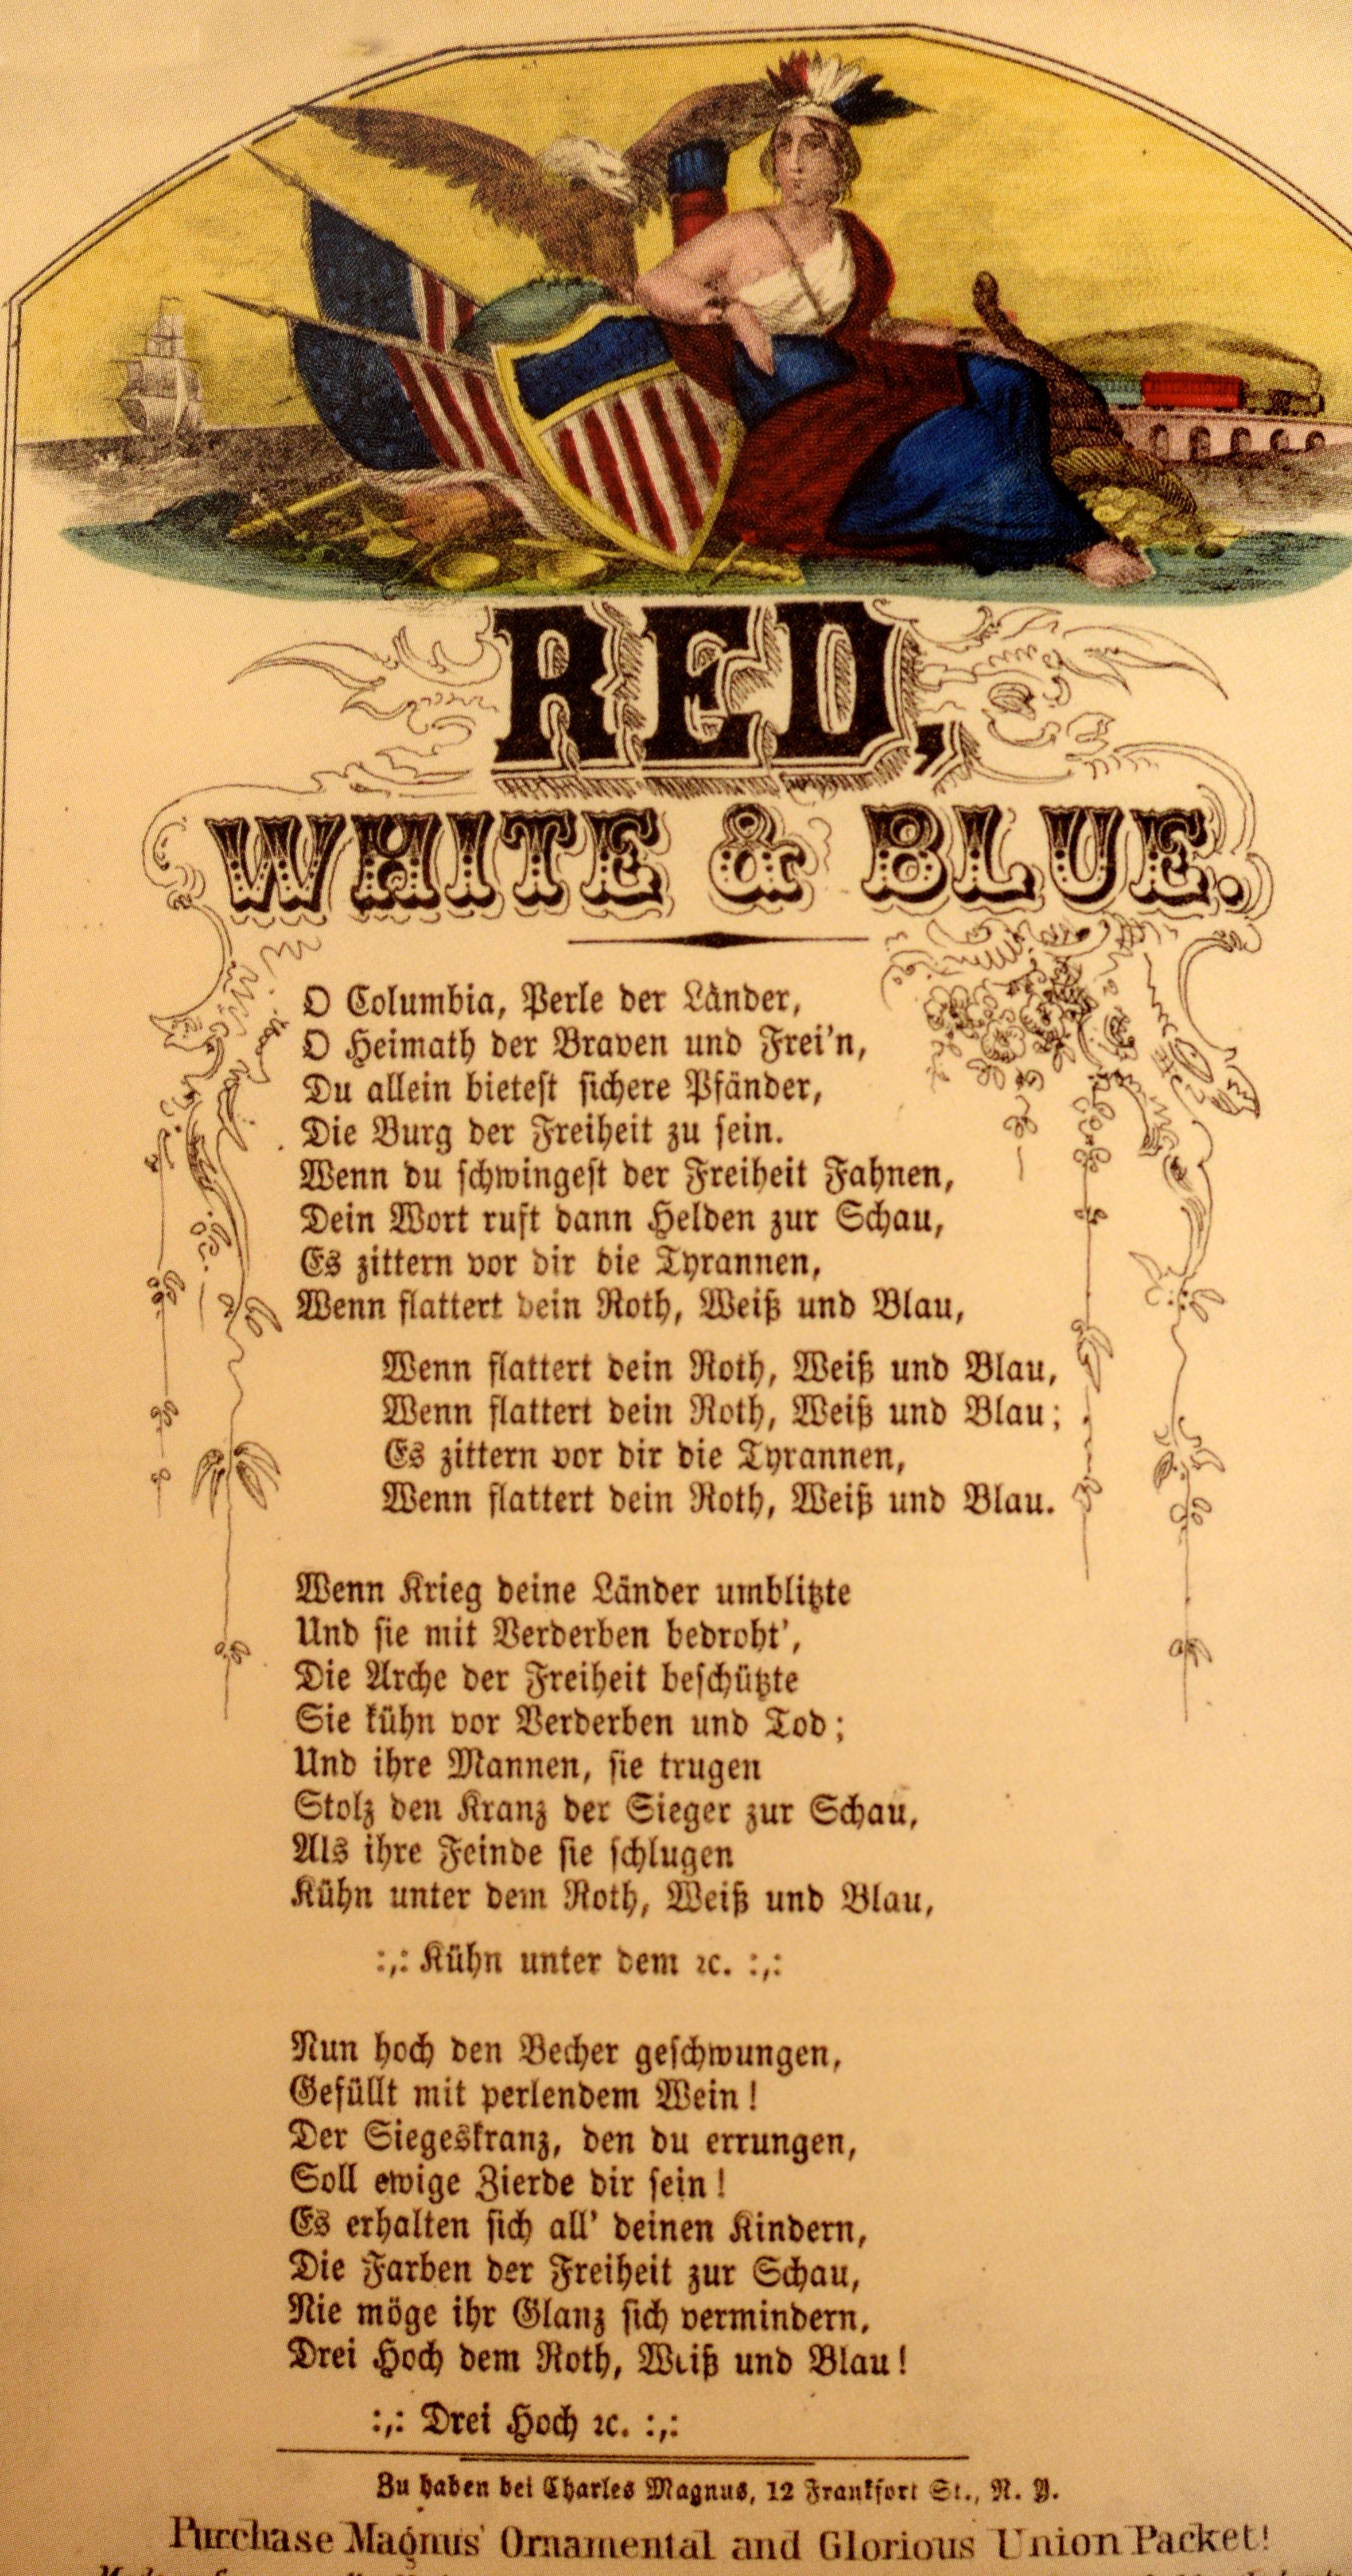 RED,
WHITE & BLUE.
O Columbia, Perle der Länder,
O Heimath der Braven und Frei'n,
Du allein bietest sichere Pfänder,
Die Burg der Freiheit zu sein.
Wenn du schwingest der Freiheit Fahnen,
Dein Wort ruft dann Helden zur Schau,
Es zittern vor dir die Tyrannen,
Wenn flattert dein Roth, Weiß und Blau,
Wenn flattert dein Roth, Weiß und Blau,
Wenn flattert dein Roth, Weiß und Blau;
Es zittern vor dir die Tyrannen,
Wenn flattert dein Roth, Weiß und Blau.
Wenn Krieg deine Länder umblitzte
Und sie mit Verderben bedroht',
Die Arche der Freiheit beschützte
Sie kühn vor Verderben und Tod;
Und ihre Mannen, sie trugen
Stolz den Kranz der Sieger zur Schau,
Als ihre Feinde sie schlugen
Kühn unter dem Roth, Weiß und Blau,
:,: Kühn unter dem ꝛc. :,:
Nun hoch den Becher geschwungen,
Gefüllt mit perlendem Wein!
Der Siegeskranz, den du errungen,
Soll ewige Zierde dir sein!
Es erhalten sich all' deinen Kindern,
Die Farben der Freiheit zur Schau,
Nie möge ihr Glanz sich vermindern,
Drei Hoch dem Roth, Weiß und Blau!
:,: Drei Hoch ꝛc. :,:
Zu haben bei Charles Magnus, 12 Frankfort St., N. Y.
Purchase Magnus' Ornamental and Glorious Union Packet!